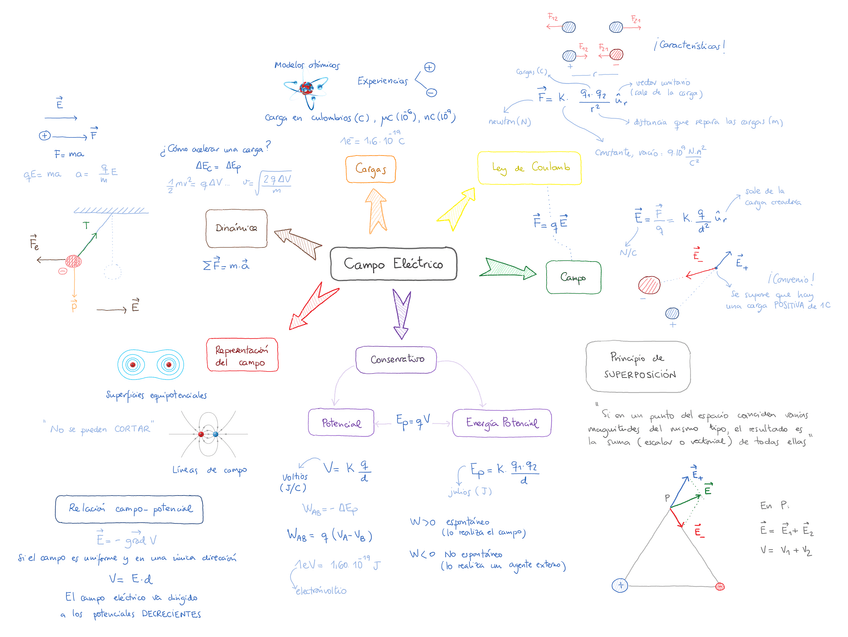 Campo Eléctrico
Cargas
Modelos atómicos
Experiencias
+
-
Carga en culombios (C), μC (10⁻⁶), nC (10⁻⁹)
1e⁻ = 1,6·10⁻¹⁹ C
Ley de Coulomb
F₁₂ F₂₁
F₁₂ F₂₁
+ -
r
¡Características!
cargas (C)
vector unitario
(sale de la carga)
F = K· q₁·q₂ / r² ûr
newton (N)
distancia que separa las cargas (m)
constante, vacío. 9·10⁹ N·m²/C²
F = qE
Campo
E = F/q = K q/d² ûr
sale de la
carga creadora
N/C
E₋
E₊
-
+
¡Convenio!
Se supone que hay
una carga POSITIVA de 1C
Dinámica
ΣF = m·a
¿Cómo acelerar una carga?
ΔEc = ΔEp
½mv² = qΔV... v = √(2qΔV/m)
E
+ F
F = ma
qE = ma a = q/m E
T
Fe
-
P
E
Representación
del campo
Superficies equipotenciales
"No se pueden CORTAR"
Líneas de campo
Conservativo
Potencial
Ep = qV
Energía Potencial
V = K q/d
Voltios
(J/C)
W_AB = -ΔEp
W_AB = q (V_A - V_B)
1eV = 1,60·10⁻¹⁹ J
electronvoltio
Ep = K· q₁·q₂ / d
julios (J)
W>0 espontáneo
(lo realiza el campo)
W<0 No espontáneo
(lo realiza un agente externo)
Relación campo-potencial
E = - grad V
Si el campo es uniforme y en una única dirección
V = E·d
El campo eléctrico va dirigido
a los potenciales DECRECIENTES
Principio de
SUPERPOSICIÓN
"Si en un punto del espacio coinciden varias
magnitudes del mismo tipo, el resultado es
la suma (escalar o vectorial) de todas ellas"
P
E₊
E
E₋
+
-
En P:
E = E₁ + E₂
V = V₁ + V₂